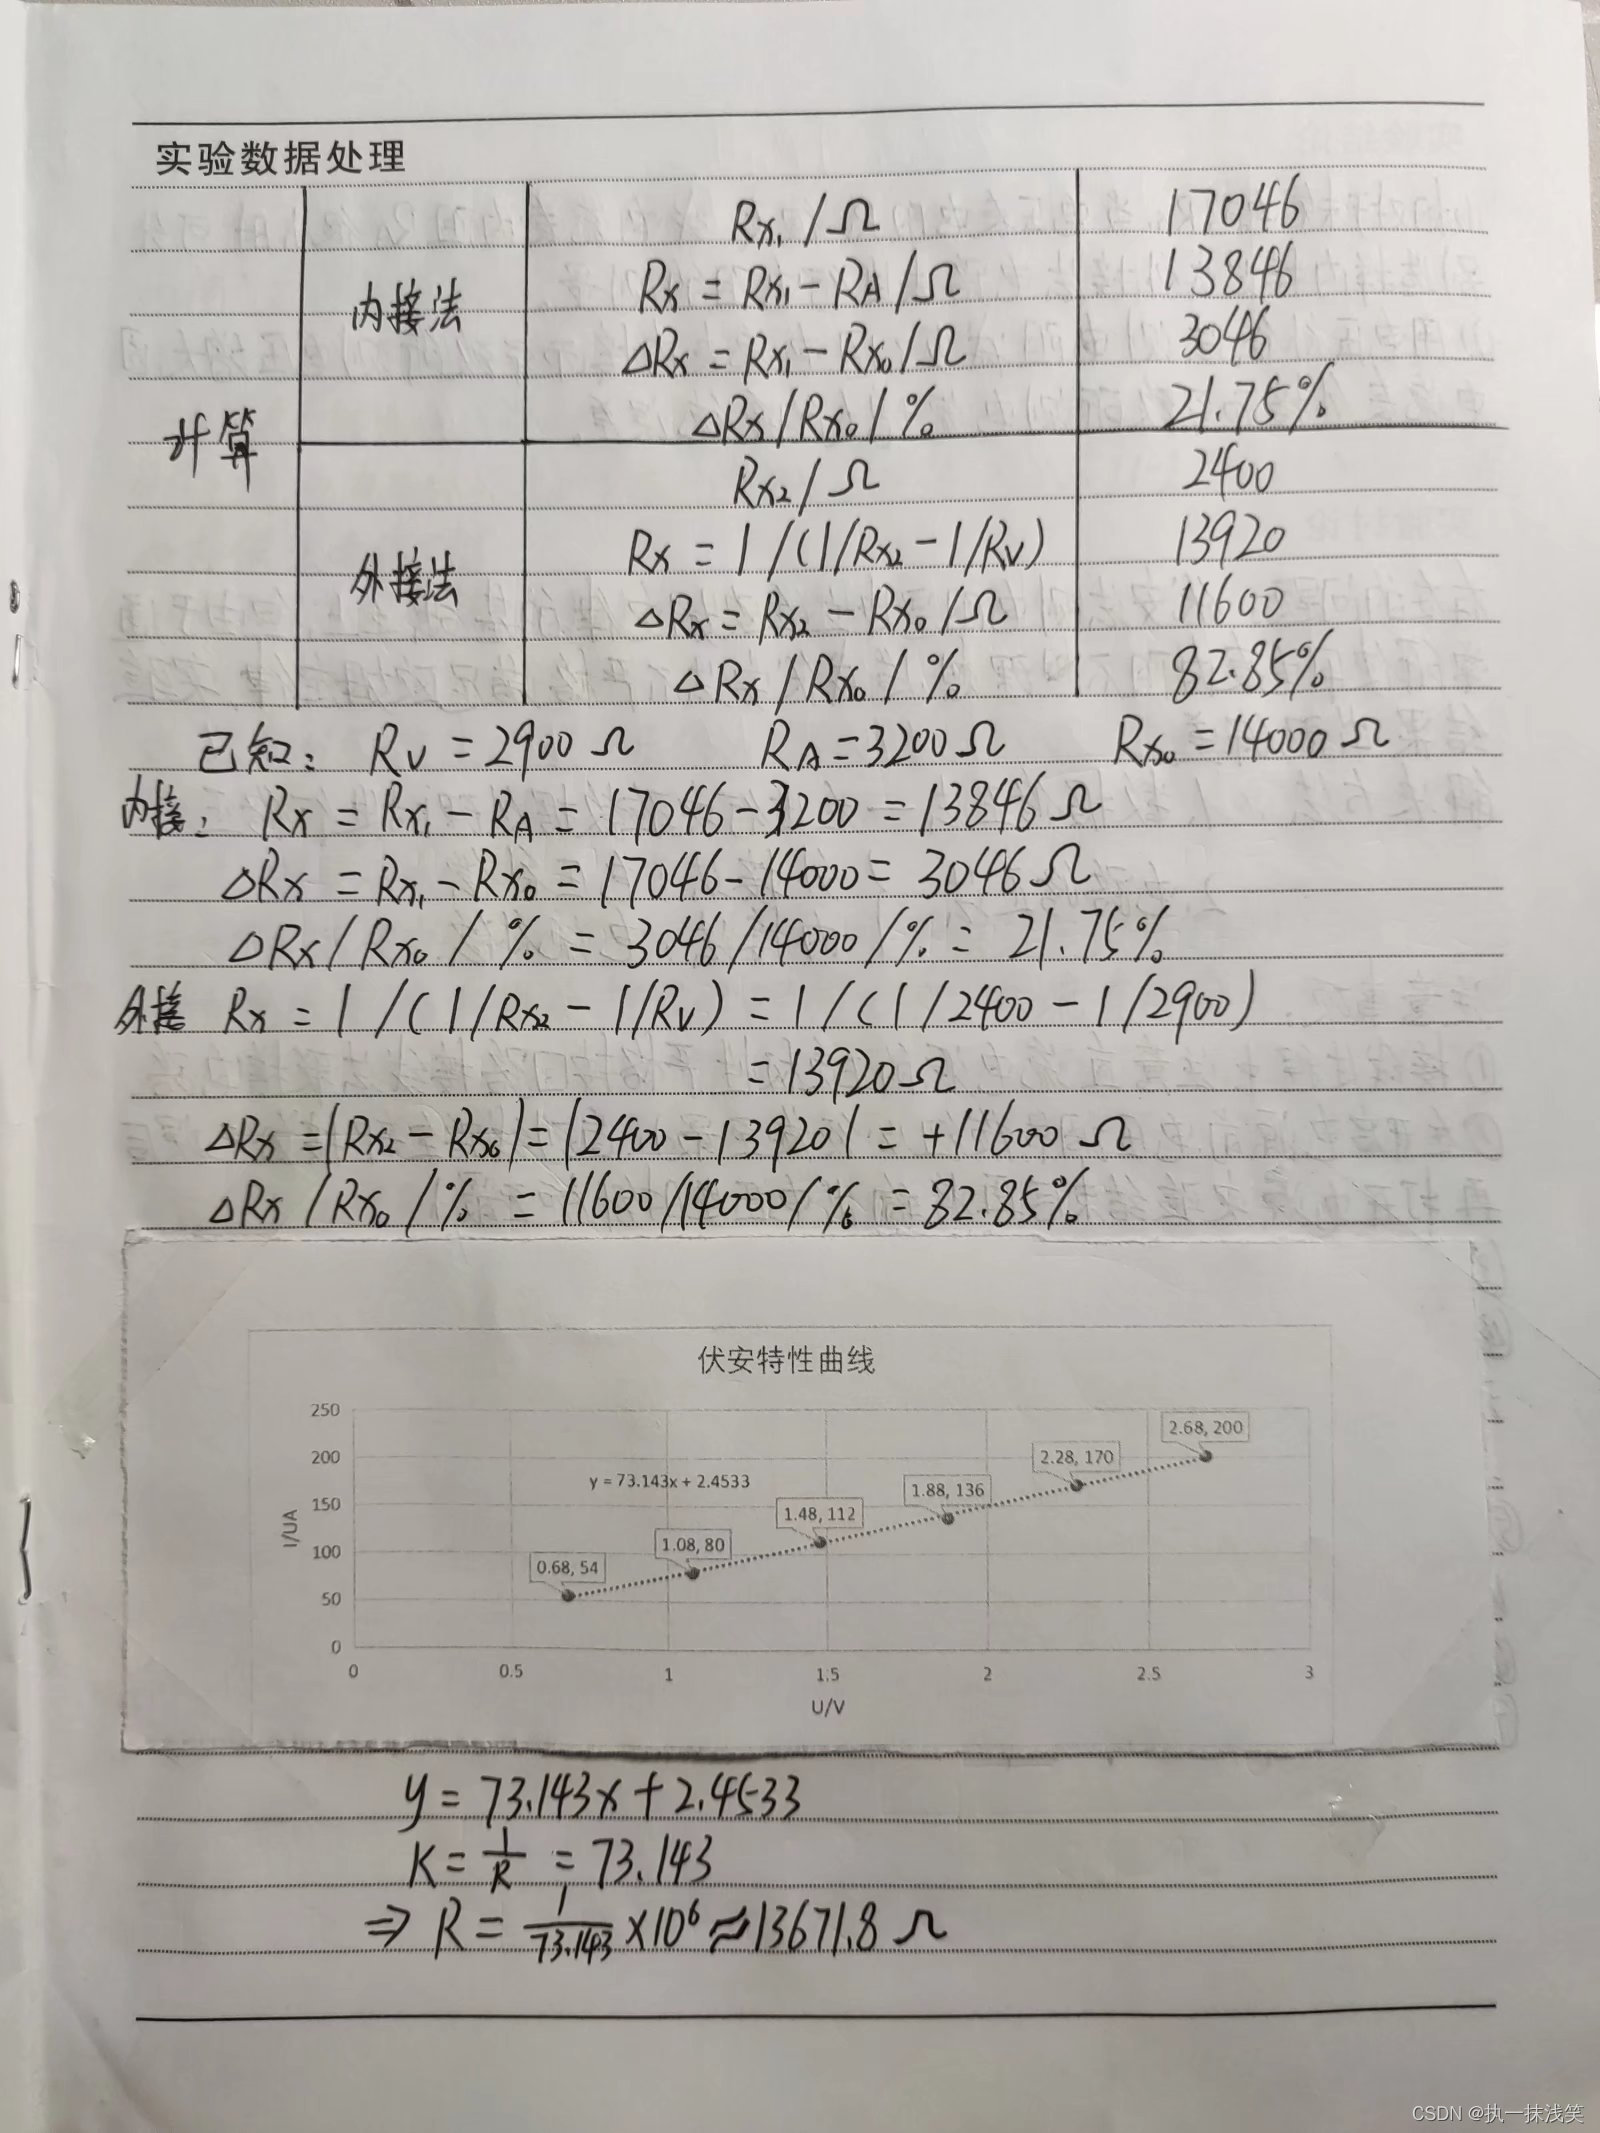 实验数据处理
计算
内接法
Rx₁/Ω 17046
Rx = Rx₁ - RA/Ω 13846
△Rx = Rx₁ - Rx₀/Ω 3046
△Rx/Rx₀/% 21.75%
外接法
Rx₂/Ω 2400
Rx = 1/(1/Rx₂ - 1/Rv) 13920
△Rx = Rx₂ - Rx₀/Ω 11600
△Rx/Rx₀/% 82.85%
已知: Rv = 2900Ω RA = 3200Ω Rx₀ = 14000Ω
内接: Rx = Rx₁ - RA = 17046 - 3200 = 13846Ω
△Rx = Rx₁ - Rx₀ = 17046 - 14000 = 3046Ω
△Rx/Rx₀/% = 3046/14000/% = 21.75%
外接 Rx = 1/(1/Rx₂ - 1/Rv) = 1/(1/2400 - 1/2900)
= 13920Ω
△Rx = |Rx₂ - Rx₀| = |2400 - 13920| = +11600Ω
△Rx/Rx₀/% = 11600/14000/% = 82.85%
伏安特性曲线
250
200
150
100
50
0
I/UA
y = 73.143x + 2.4533
0.68, 54
1.08, 80
1.48, 112
1.88, 136
2.28, 170
2.68, 200
0 0.5 1 1.5 2 2.5 3
U/V
y = 73.143x + 2.4533
K = 1/R = 73.143
⇒ R = 1/73.143 ×10⁶ ≈ 13671.8Ω
CSDN @执一抹浅笑